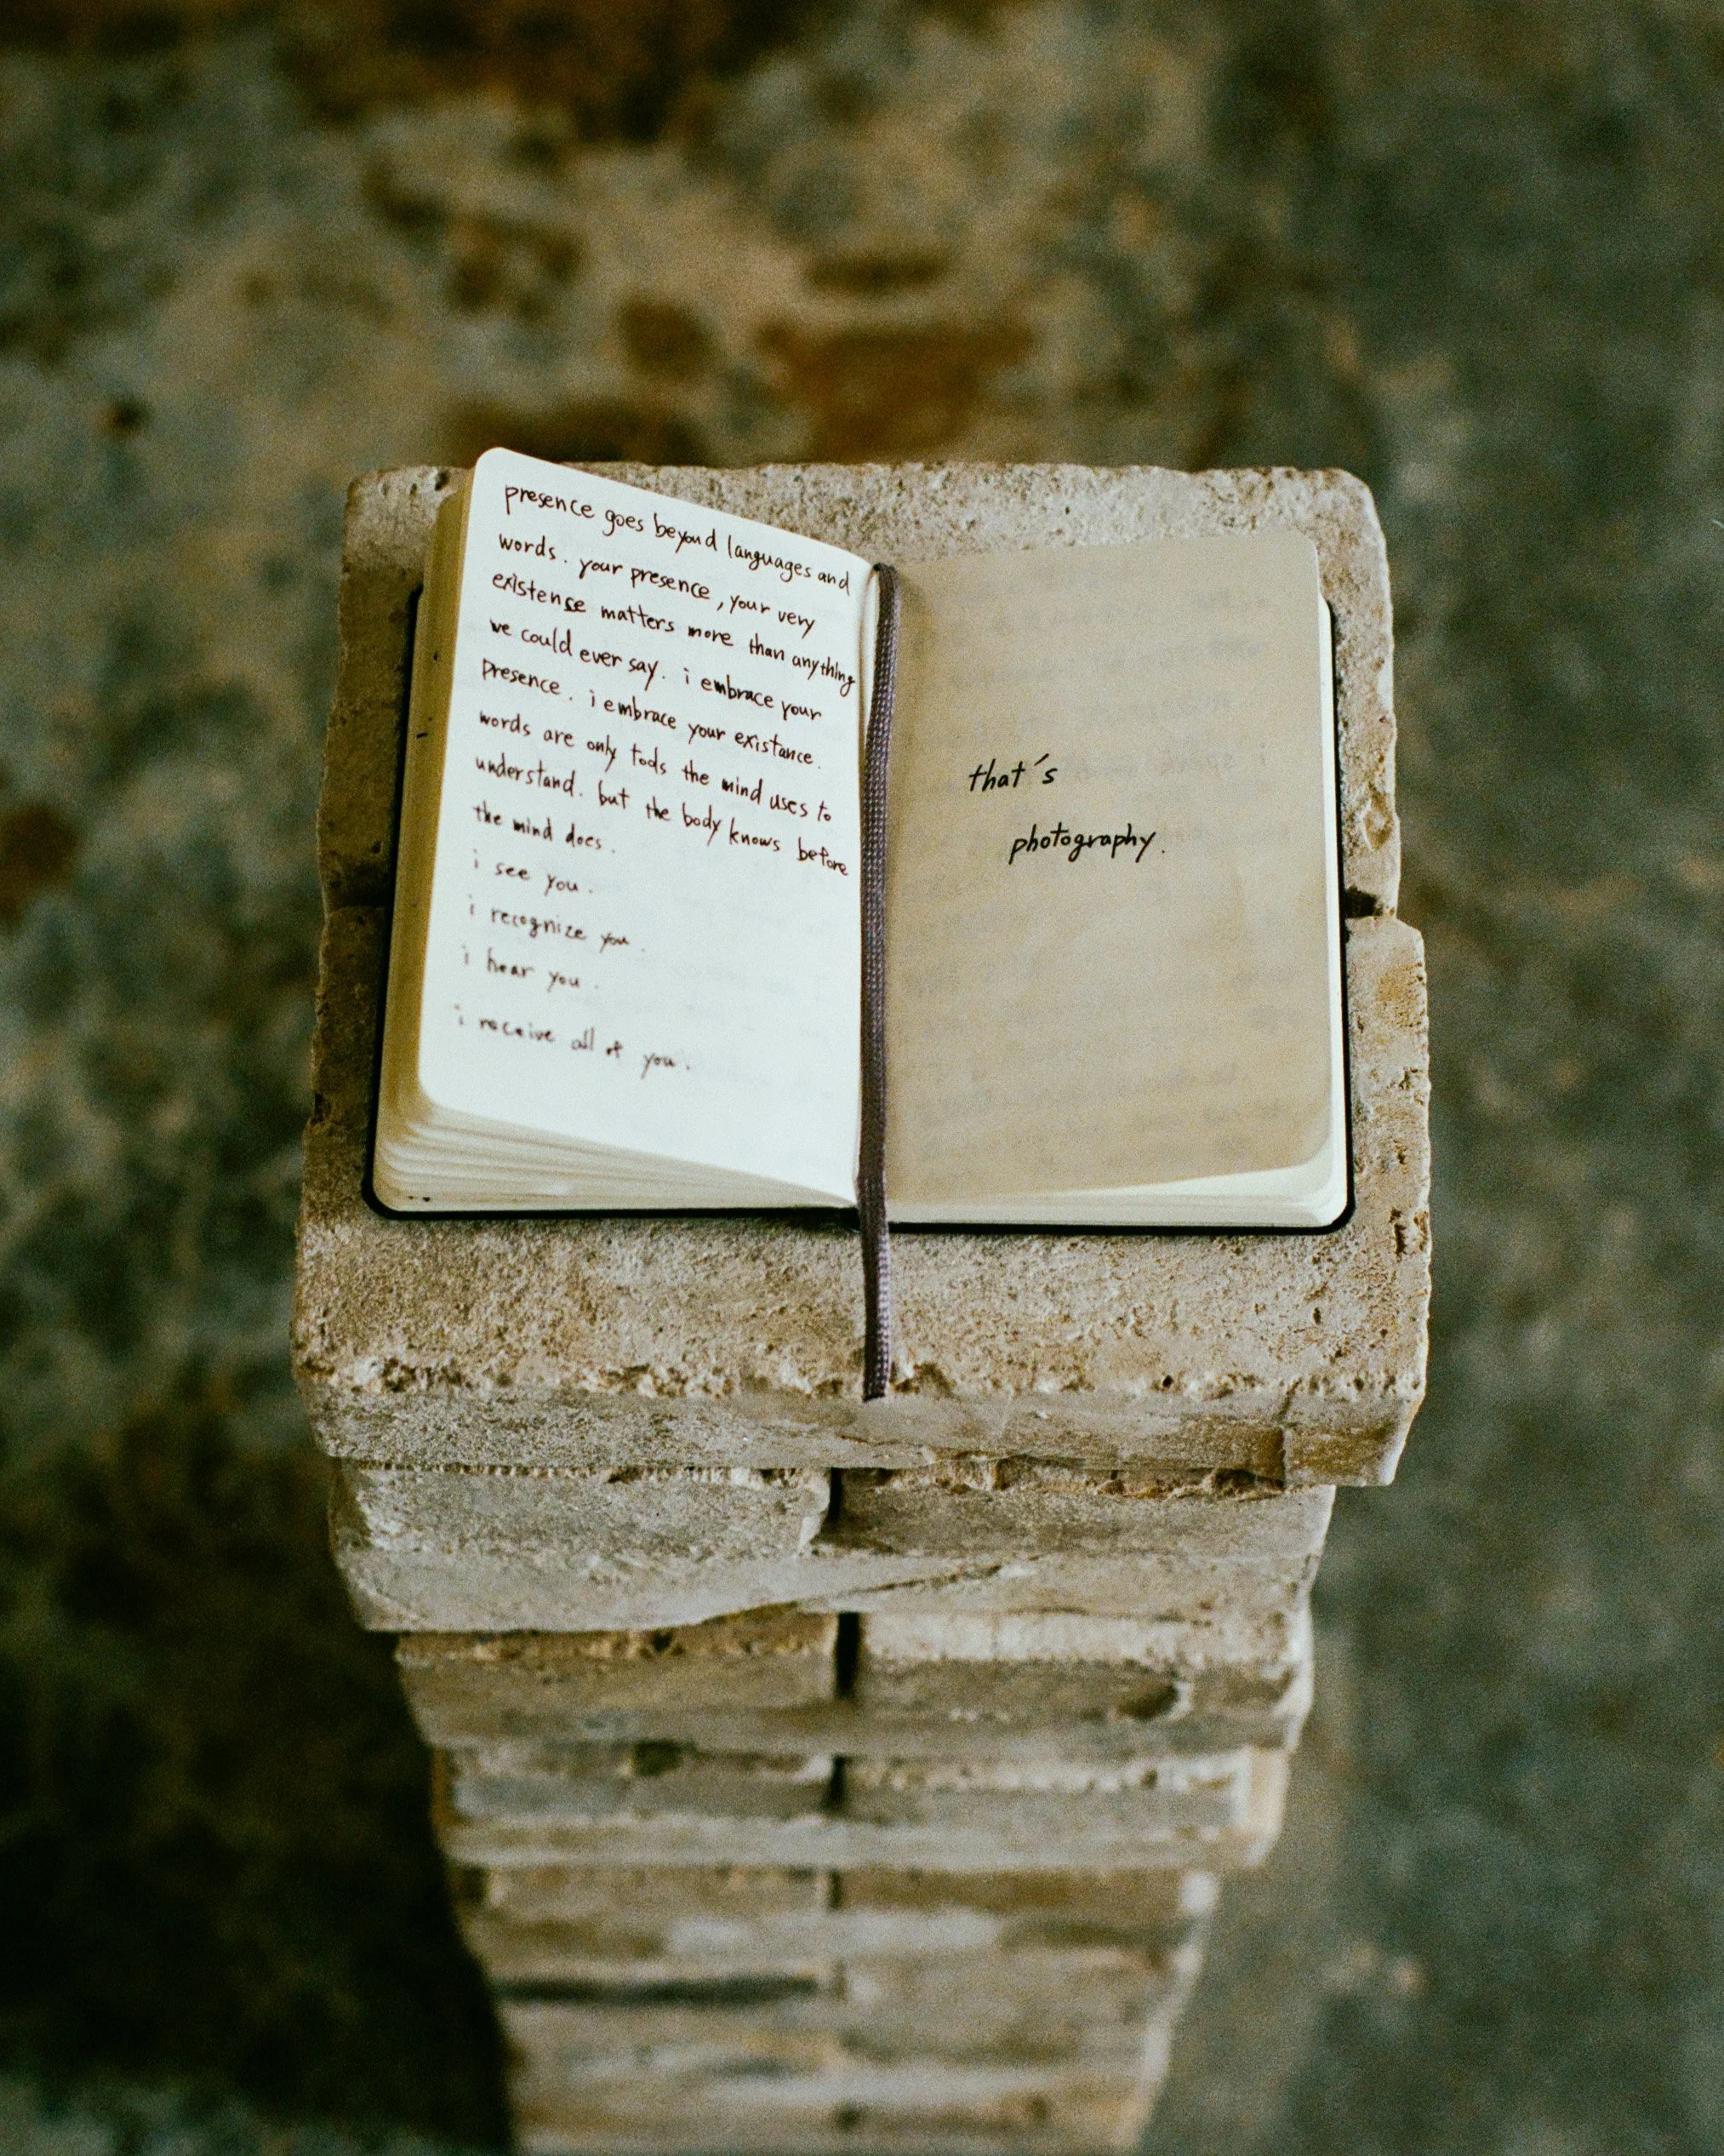 presence goes beyond languages and
words. your presence, your very
existense matters more than anything
we could ever say. i embrace your
presence. i embrace your existance.
words are only tools the mind uses to
understand. but the body knows before
the mind does.
i see you.
i recognize you.
i hear you.
i receive all of you.
that's
photography.